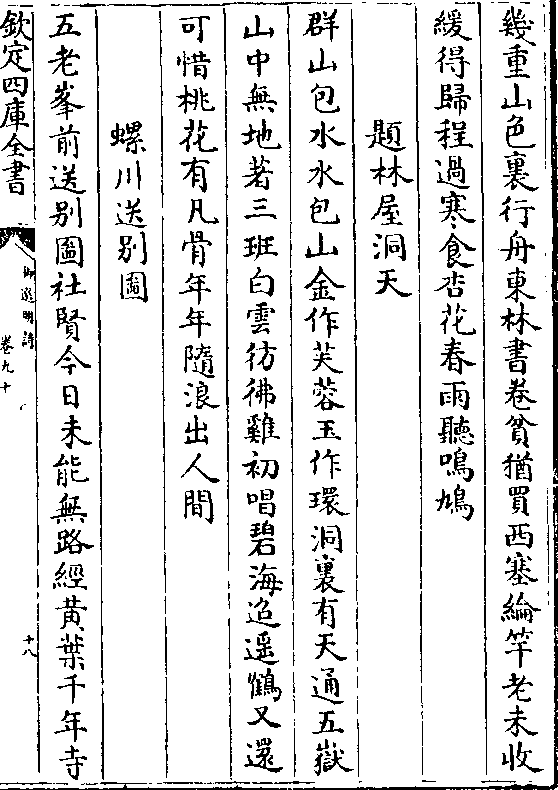 幾重山色裏行舟東林書卷貧猶買西塞綸竿老未收
緩得歸程過寒食杏花春雨聽鳴鳩
題林屋洞天
群山包水水包山金作芙蓉玉作環洞裏有天通五嶽
山中無地著三班白雲彷彿雞初唱碧海迢遥鶴又還
可惜桃花有凡骨年年隨浪出人間
螺川送别圖
五老峯前送别圖社賢今日未能無路經黄葉千年寺
欽定四庫全書
御選明詩
卷九十
十八